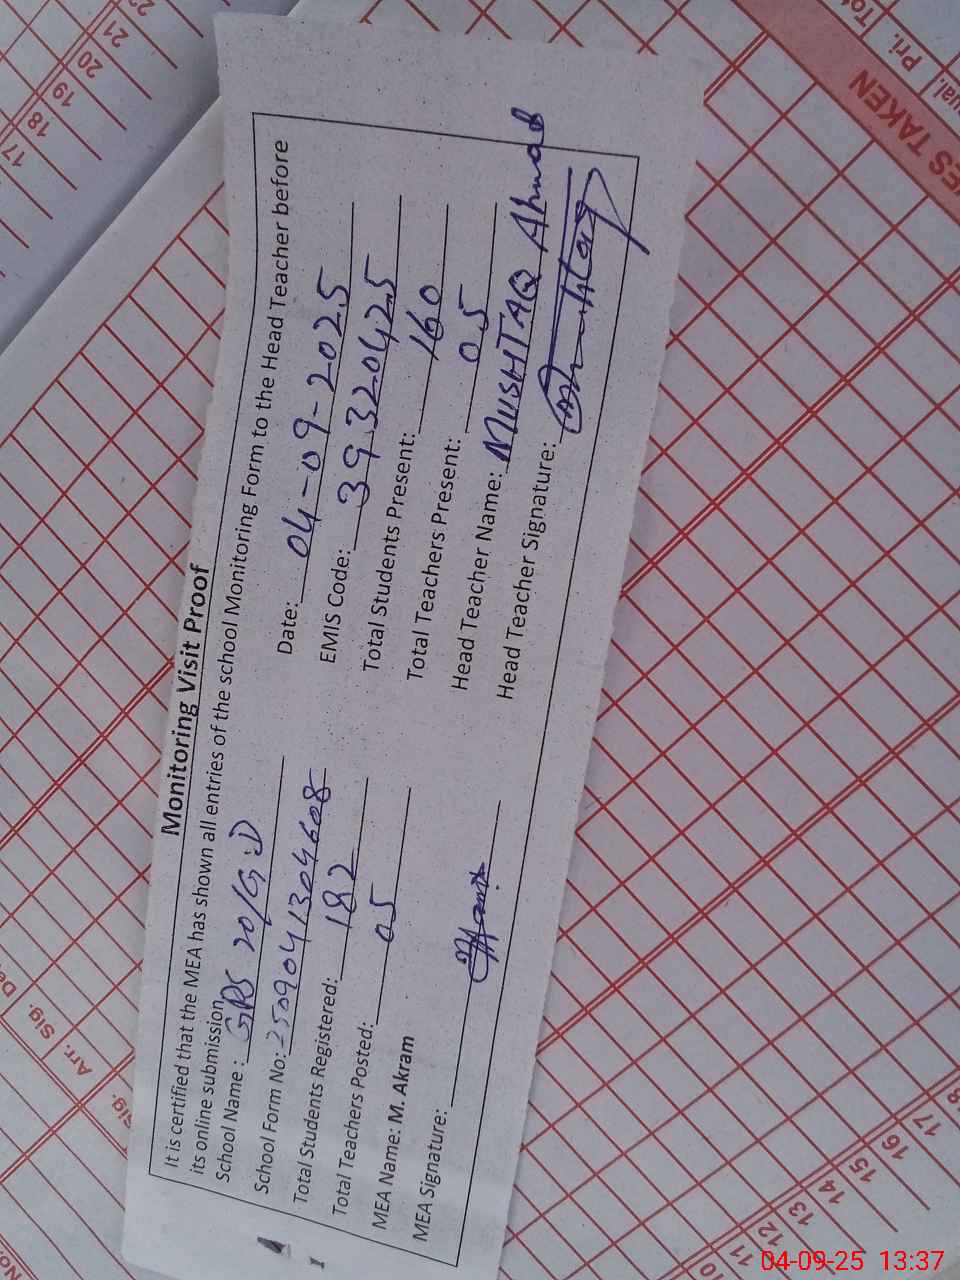 Monitoring Visit Proof
It is certified that the MEA has shown all entries of the school Monitoring Form to the Head Teacher before
its online submission
School Name : GPS 20/G.D Date: 04-09-2025
School Form No: 2509041304608 EMIS Code: 39320425
Total Students Registered: 182 Total Students Present: 160
Total Teachers Posted: 05 Total Teachers Present: 05
MEA Name: M. Akram Head Teacher Name: MUSHTAQ Ahmad
MEA Signature: Head Teacher Signature:
ES TAKEN
Pri.
17 18 19 20 21
Arr. Sig.
Sig.
10 11 12 13 14 15 16 17
04-09-25 13:37